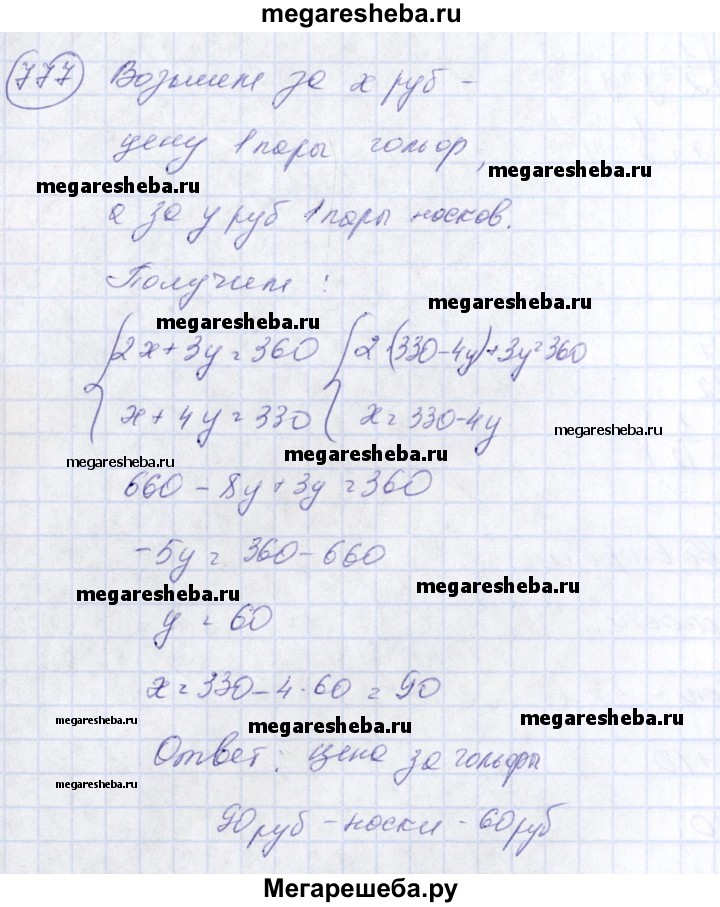 megaresheba.ru
777 Возьмем за x руб -
цену 1 пары гольф,
megaresheba.ru
megaresheba.ru
а за y руб 1 пары носков.
Получим:
megaresheba.ru
megaresheba.ru
2x + 3y = 360 2·(330-4y)+3y=360
x + 4y = 330 x = 330-4y
megaresheba.ru
megaresheba.ru
megaresheba.ru
660 - 8y + 3y = 360
-5y = 360 - 660
megaresheba.ru
megaresheba.ru
y = 60
x = 330 - 4·60 = 90
megaresheba.ru
megaresheba.ru
megaresheba.ru
Ответ: цена за гольфы
megaresheba.ru
90 руб - носки - 60 руб
Мегарешеба.ру